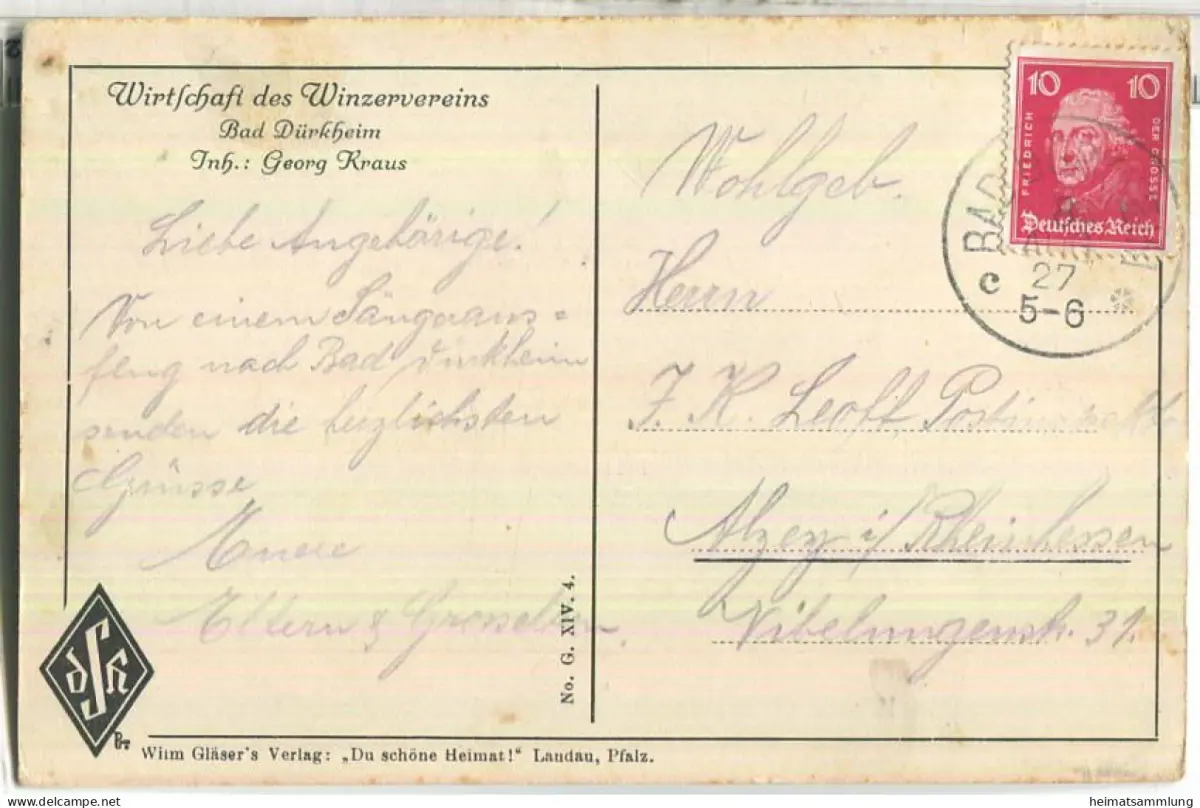 Wirtschaft des Winzervereins
Bad Dürkheim
Inh.: Georg Kraus
Liebe Angehörige!
Von einem Sängeraus=
flug nach Bad Dürkheim
senden die herzlichsten
Grüsse
Euere
Eltern & Grosseltern.
dSH
No. G. XIV. 4.
Wilm Gläser's Verlag: „Du schöne Heimat!“ Landau, Pfalz.
10 10
FRIEDRICH DER GROSSE
Deutsches Reich
BAD
27
c 5-6
Wohlgeb.
Herrn
J. K.
Alzey i/ Rheinhessen
Nibelungenstr. 31.
© heimatsammlung